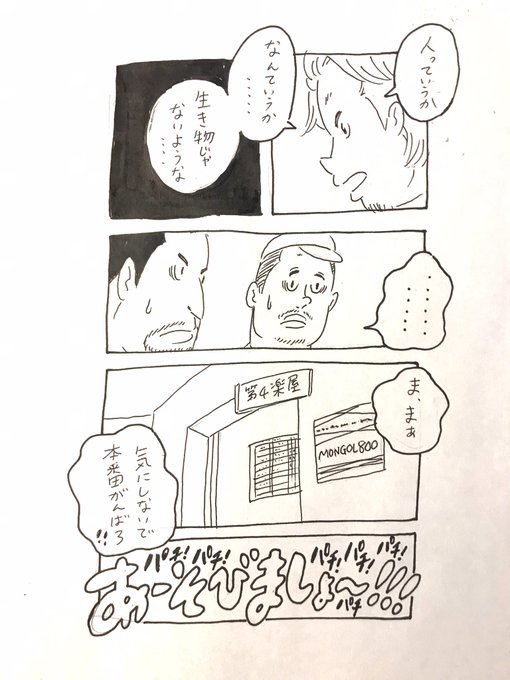 人っていうか
なんていうか
……
生き物じゃ
ないような
……
………
………
ま、まぁ
第4楽屋
MONGOL800
気にしないで
本番がんばろ
!!
あーそびましょ〜!!!
パチ!
パチ!
パチ!
パチ!
パチ!
パチ